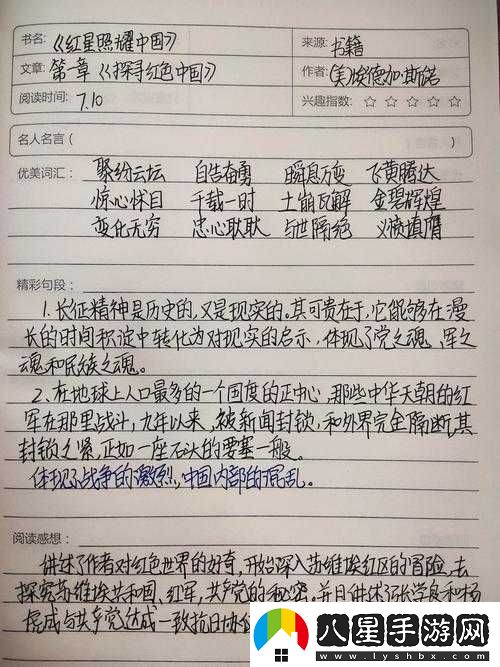 书名: 《红星照耀中国》
来源: 书籍
文章: 第一章《探寻红色中国》
作者: (美)埃德加·斯诺
阅读时间: 7.10
兴趣指数: ☆ ☆ ☆ ☆ ☆
名人名言 ( )
优美词汇: 聚纷云坛 自告奋勇 瞬息万变 飞黄腾达
惊心怵目 千载一时 土崩瓦解 金碧辉煌
变化无穷 忠心耿耿 与世隔绝 义愤填膺
精彩句段:
1. 长征精神是历史的,又是现实的。其可贵在于,它能够在漫
长的时间积淀中转化为对现实的启示,体现了党之魂、军之
魂和民族之魂。
2. 在地球上人口最多的一个国度的正中心,那些中华天朝的红
军在那里战斗,九年以来,被新闻封锁,和外界完全隔断,其
封锁之紧,正如一座石头的要塞一般。
体现了战争的激烈,中国内部的混乱。
阅读感想:
讲述了作者对红色世界的好奇,开始深入苏维埃红区的冒险,去
探究苏维埃共和国、红军、共产党的秘密,并且讲述了张学良和杨
虎成与共产党达成一致抗日协
八星手游网
www.lyshbx.com